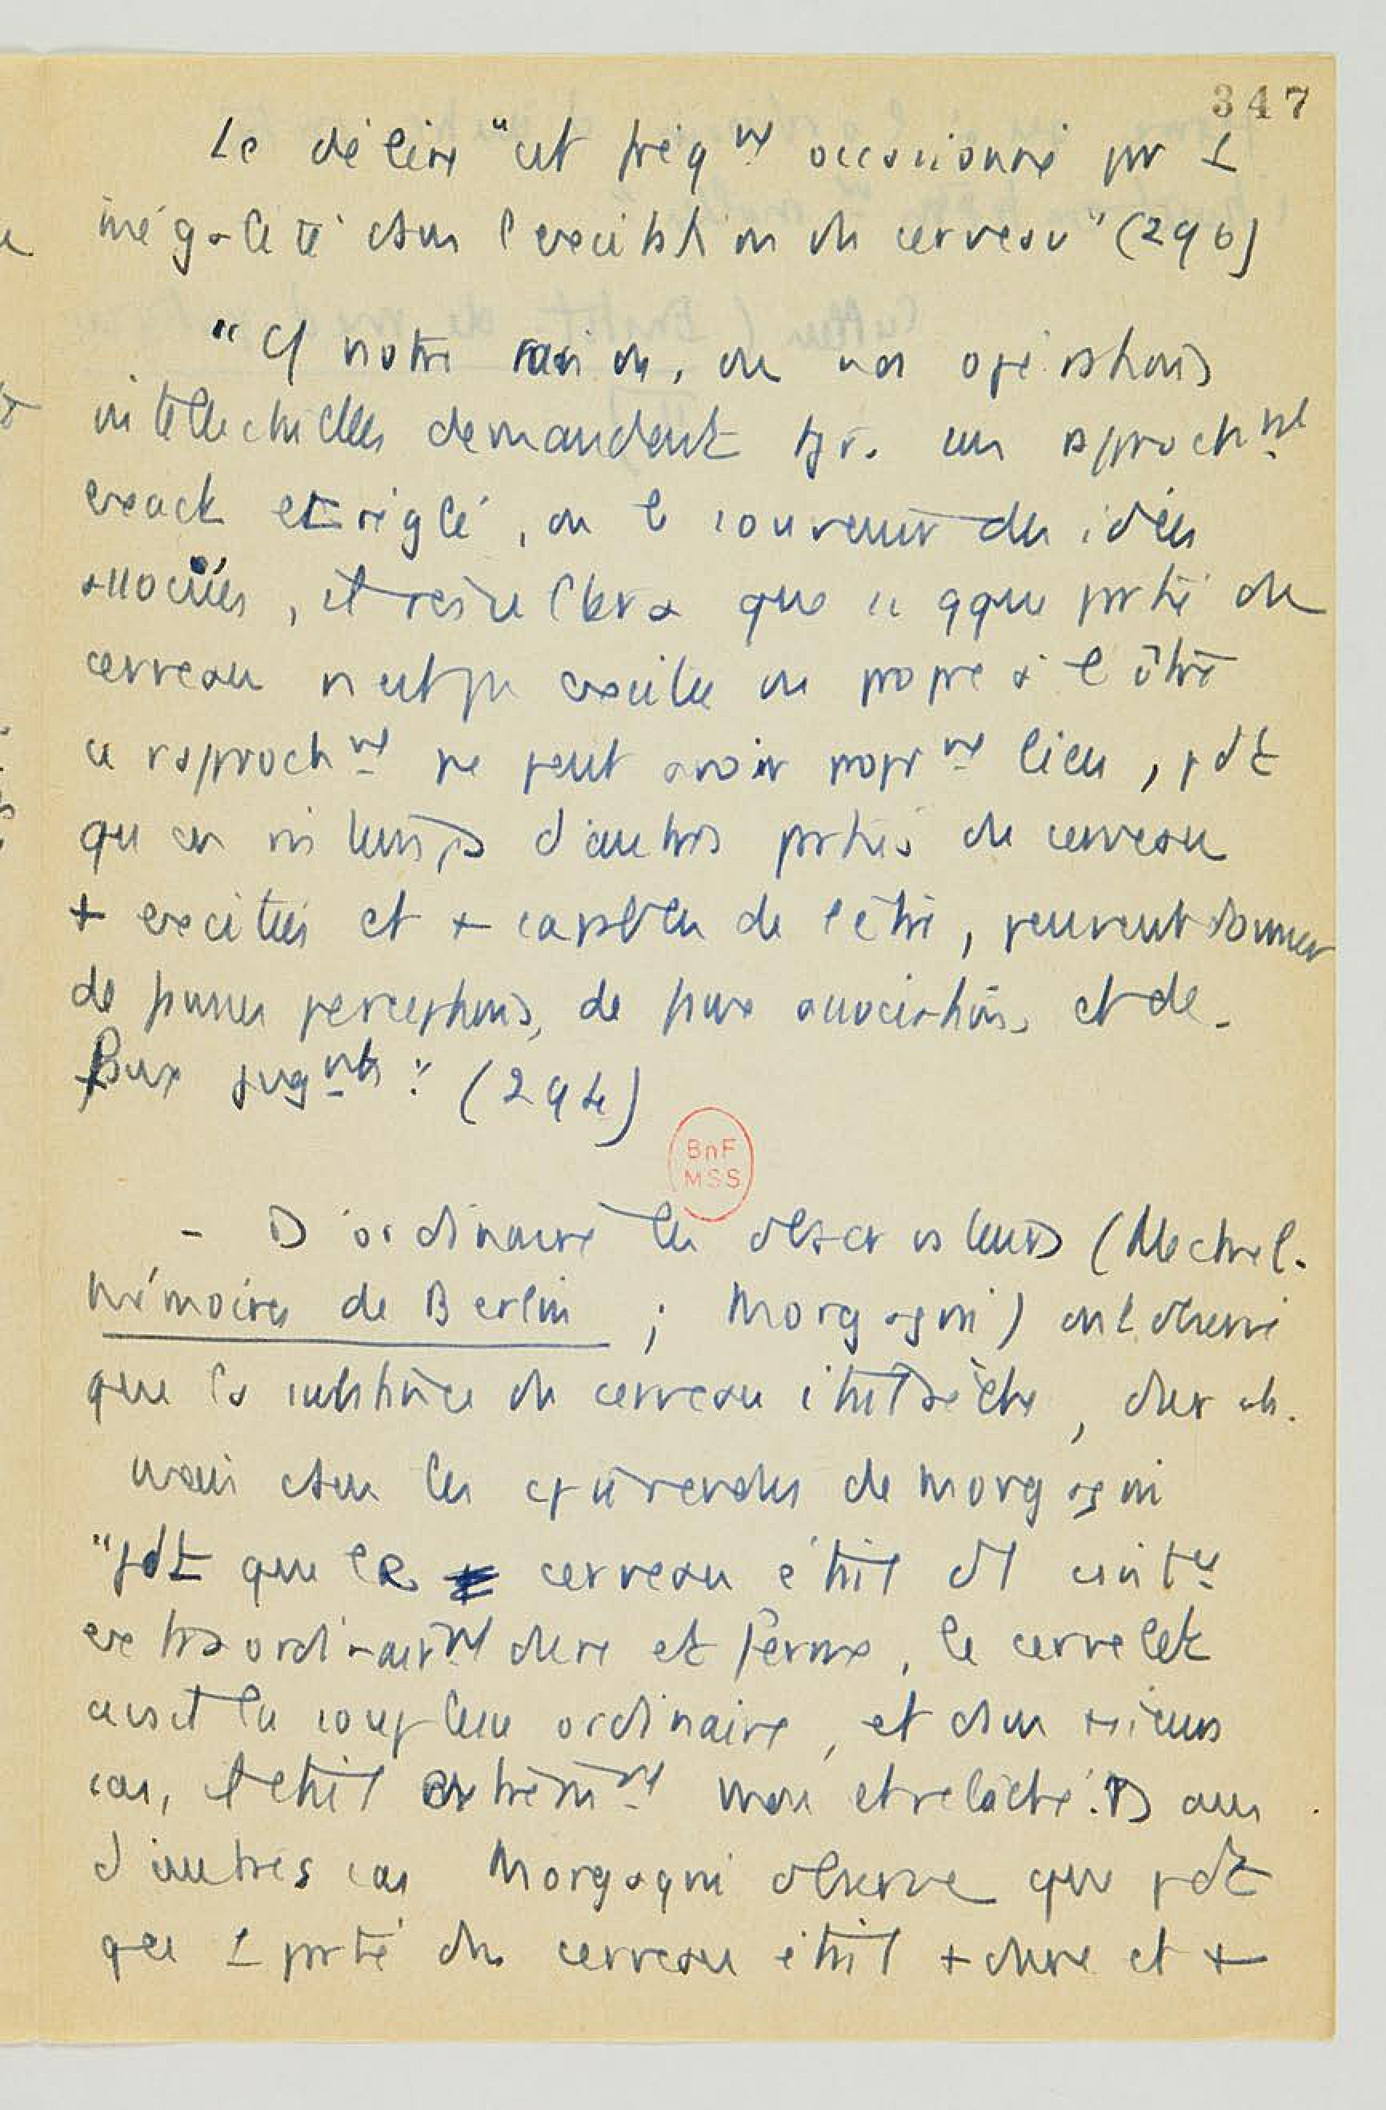 347
Le délire "est freq^nt occasionné par 1
inégalité dans l'excitation du cerveau" (290)
"Cf notre raison, ou nos opérations
intellectuelles demandent tjr. un rapproch^nt
exact et réglé, ou le souvenir des idées
associées, il résultera que si qque partie du
cerveau n'est pas excitée ou propre à l'être
ce rapproch^nt ne peut avoir propr^nt lieu, pdt
qu'en mm temps d'autres parties du cerveau
+ excitées et + capables de l'être, peuvent donner
de fausses perceptions, de fausses associations et de
faux jug^nts." (294)
BnF
MSS
- D'ordinaire les observateurs (Meckel.
Mémoires de Berlin ; Morgagni) ont observé
que la substance du cerveau était sèche, dure etc.
mais dans les de Morgagni
"pdt que le cerveau était d'1 côté
extraordinair^nt dure et ferme, le cervelet
avait la souplesse ordinaire, et dans plusieurs
cas, il était extrêm^nt mou et relâché. Dans
d'autres cas Morgagni observe que pdt
que 1 partie du cerveau était + dure et +